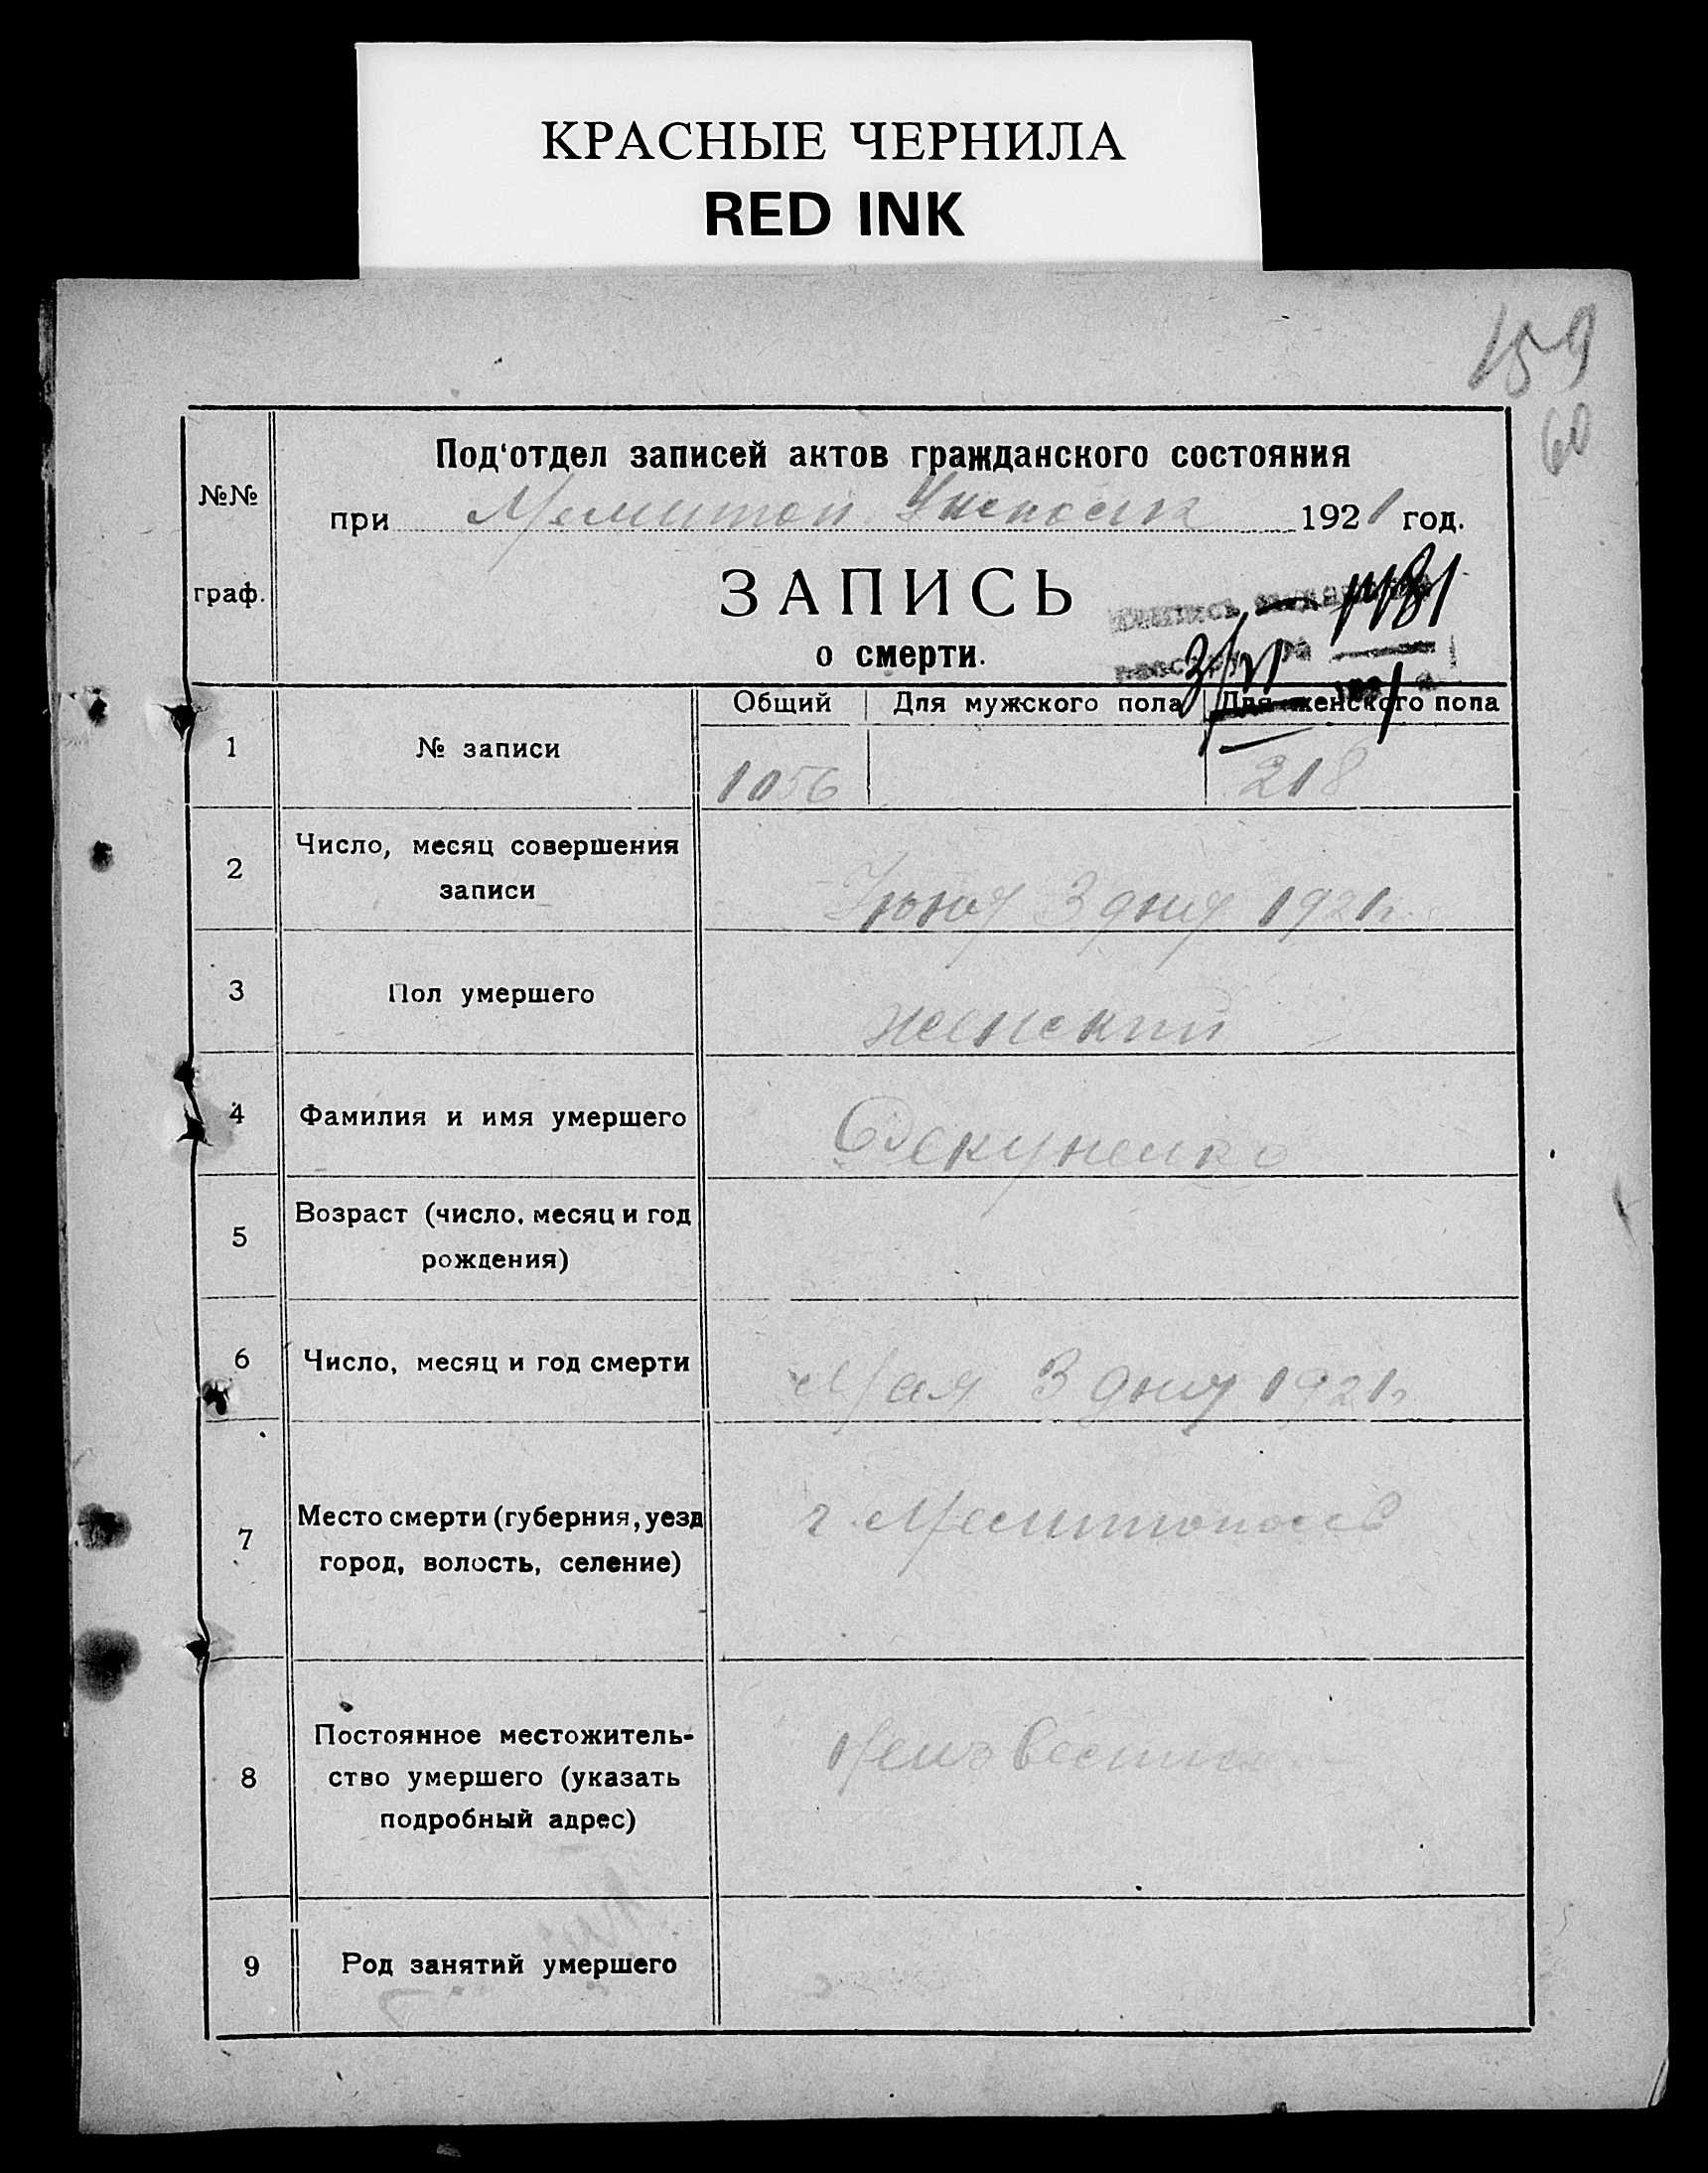 КРАСНЫЕ ЧЕРНИЛА
RED INK
159
60
№№
граф.
Под‘отдел записей актов гражданского состояния
при Мелитоп. 1921 год.
ЗАПИСЬ
о смерти.
Общий Для мужского пола Для женского пола
1 № записи 1056 218
2 Число, месяц совершения
записи
Июня 3 дня 1921 г.
3 Пол умершего женский
4 Фамилия и имя умершего
5 Возраст (число, месяц и год
рождения)
6 Число, месяц и год смерти Мая 3 дня 1921 г.
7 Место смерти (губерния, уезд
город, волость, селение)
г. Мелитополь
8 Постоянное местожитель-
ство умершего (указать
подробный адрес)
Неизвестно
9 Род занятий умершего